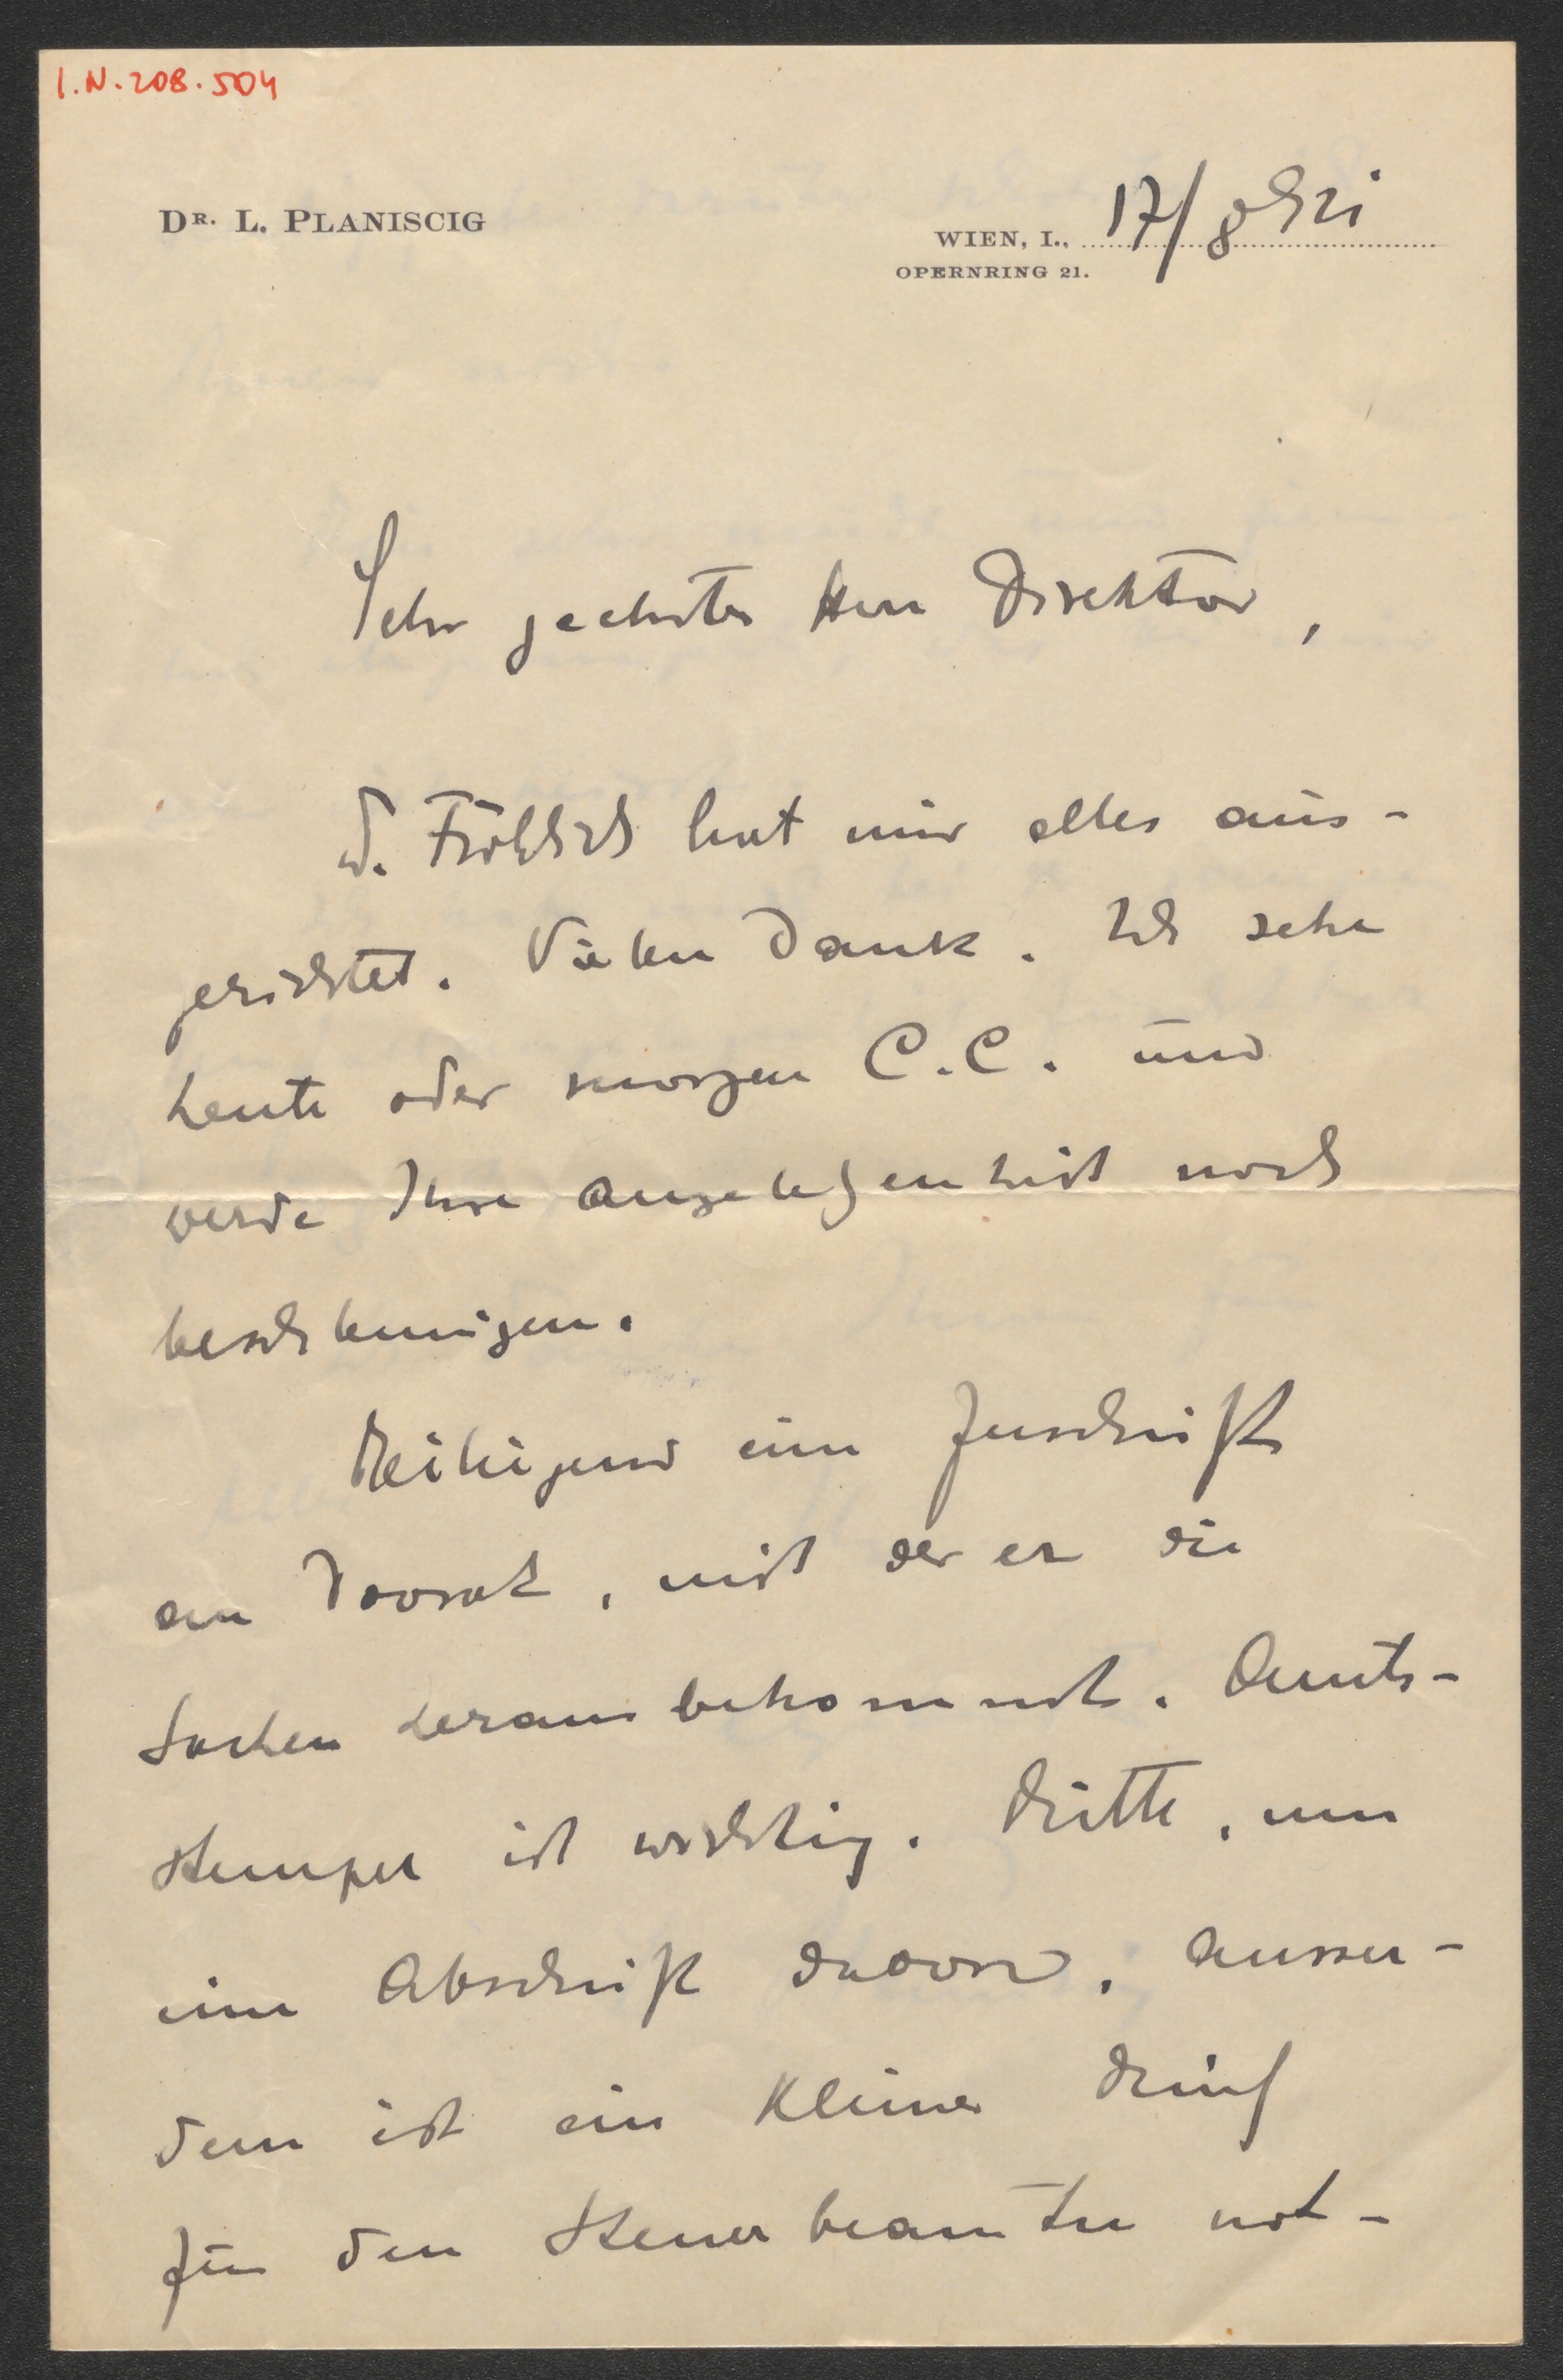 I.N. 208.504
DR. L. PLANISCIG
WIEN, I., 17/8 921
OPERNRING 21.
Sehr geehrter Herr Direktor,
D. Fröhlich hat mir alles aus-
gerichtet. Vielen Dank. Ich sehe
heute oder morgen C.C. und
werde Ihre Angelegenheit noch
beschleunigen.
Beiliegend eine Zuschrift
an Dvorak, mit der er die
Sachen herausbekommt. Amts-
stempel ist wichtig. Bitte, um
eine Abschrift davon. Ausser-
dem ist ein kleiner
für den Steuerbeamten not-